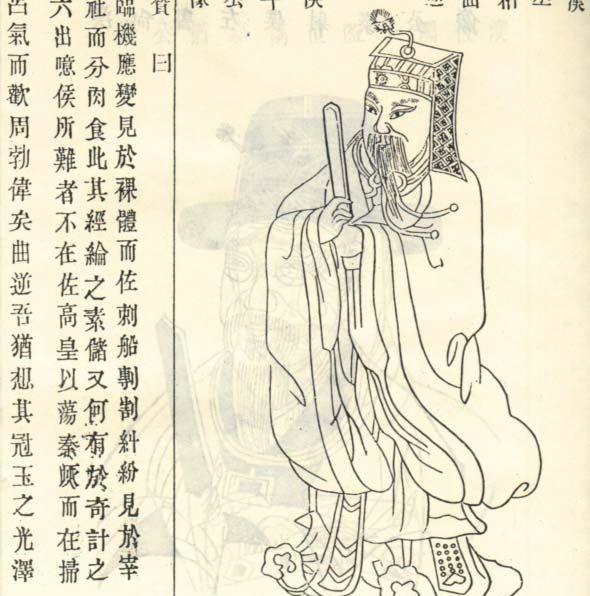 贊曰
臨機應變見於裸體而佐刺船剸割糾紛見於宰
社而分肉食此其經綸之素儲又何有於奇計之
六出噫侯所難者不在佐高皇以蕩秦而在掃
呂氣而歡周勃偉矣曲逆吾猶想其冠玉之光澤